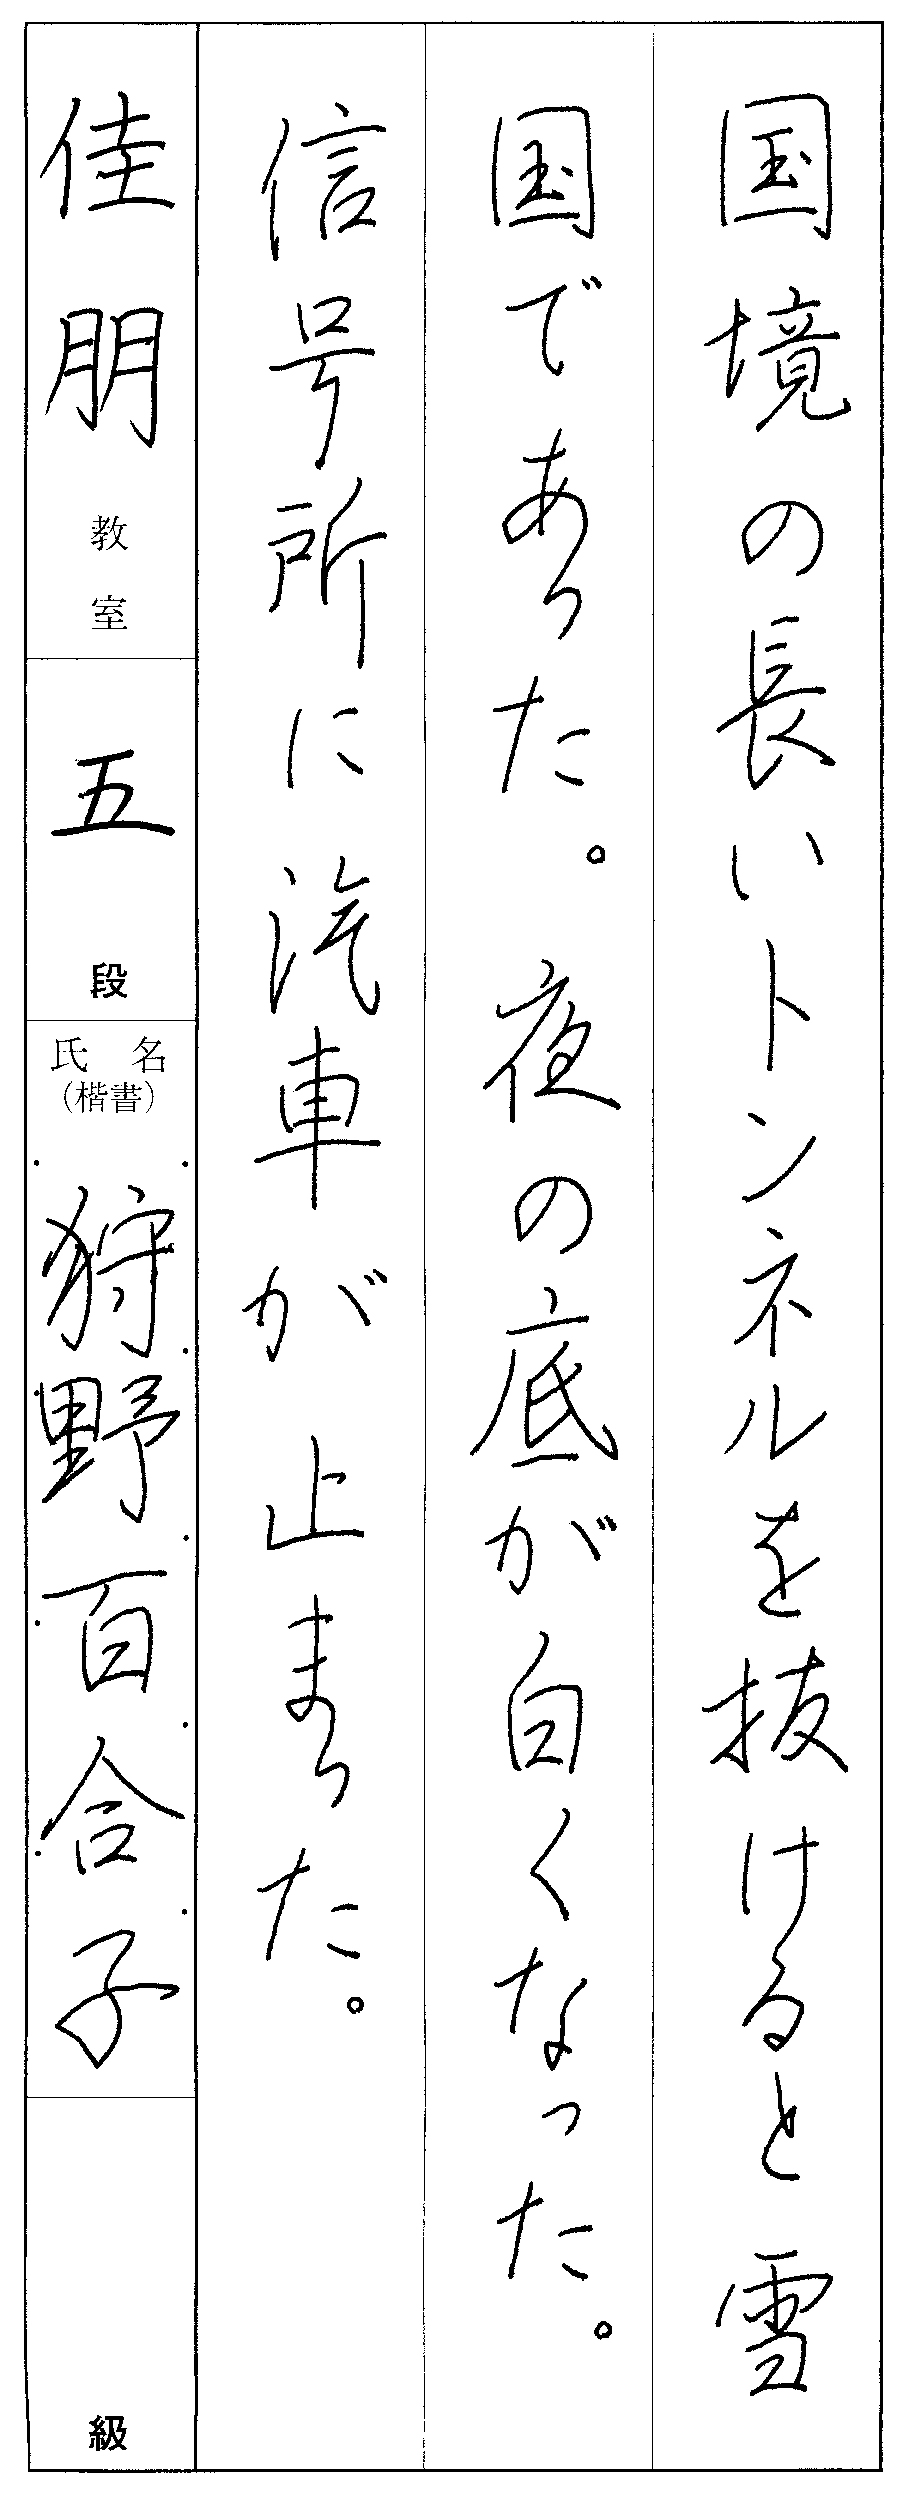 国境の長いトンネルを抜けると雪
国であった。夜の底が白くなった。
信号所に汽車が止まった。
佳朋教室
五段
氏名
（楷書）
狩野百合子
級